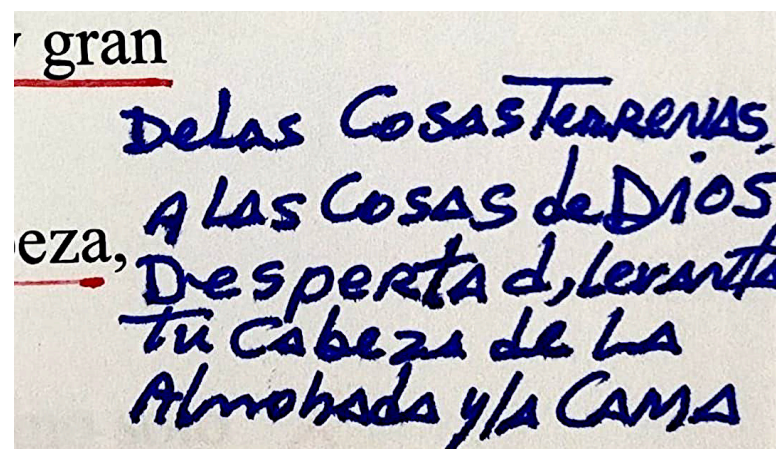 gran
De las Cosas Terrenas,
A las Cosas de Dios
eza,
Despertad, levanta
Tu Cabeza de La
Almohada y la Cama